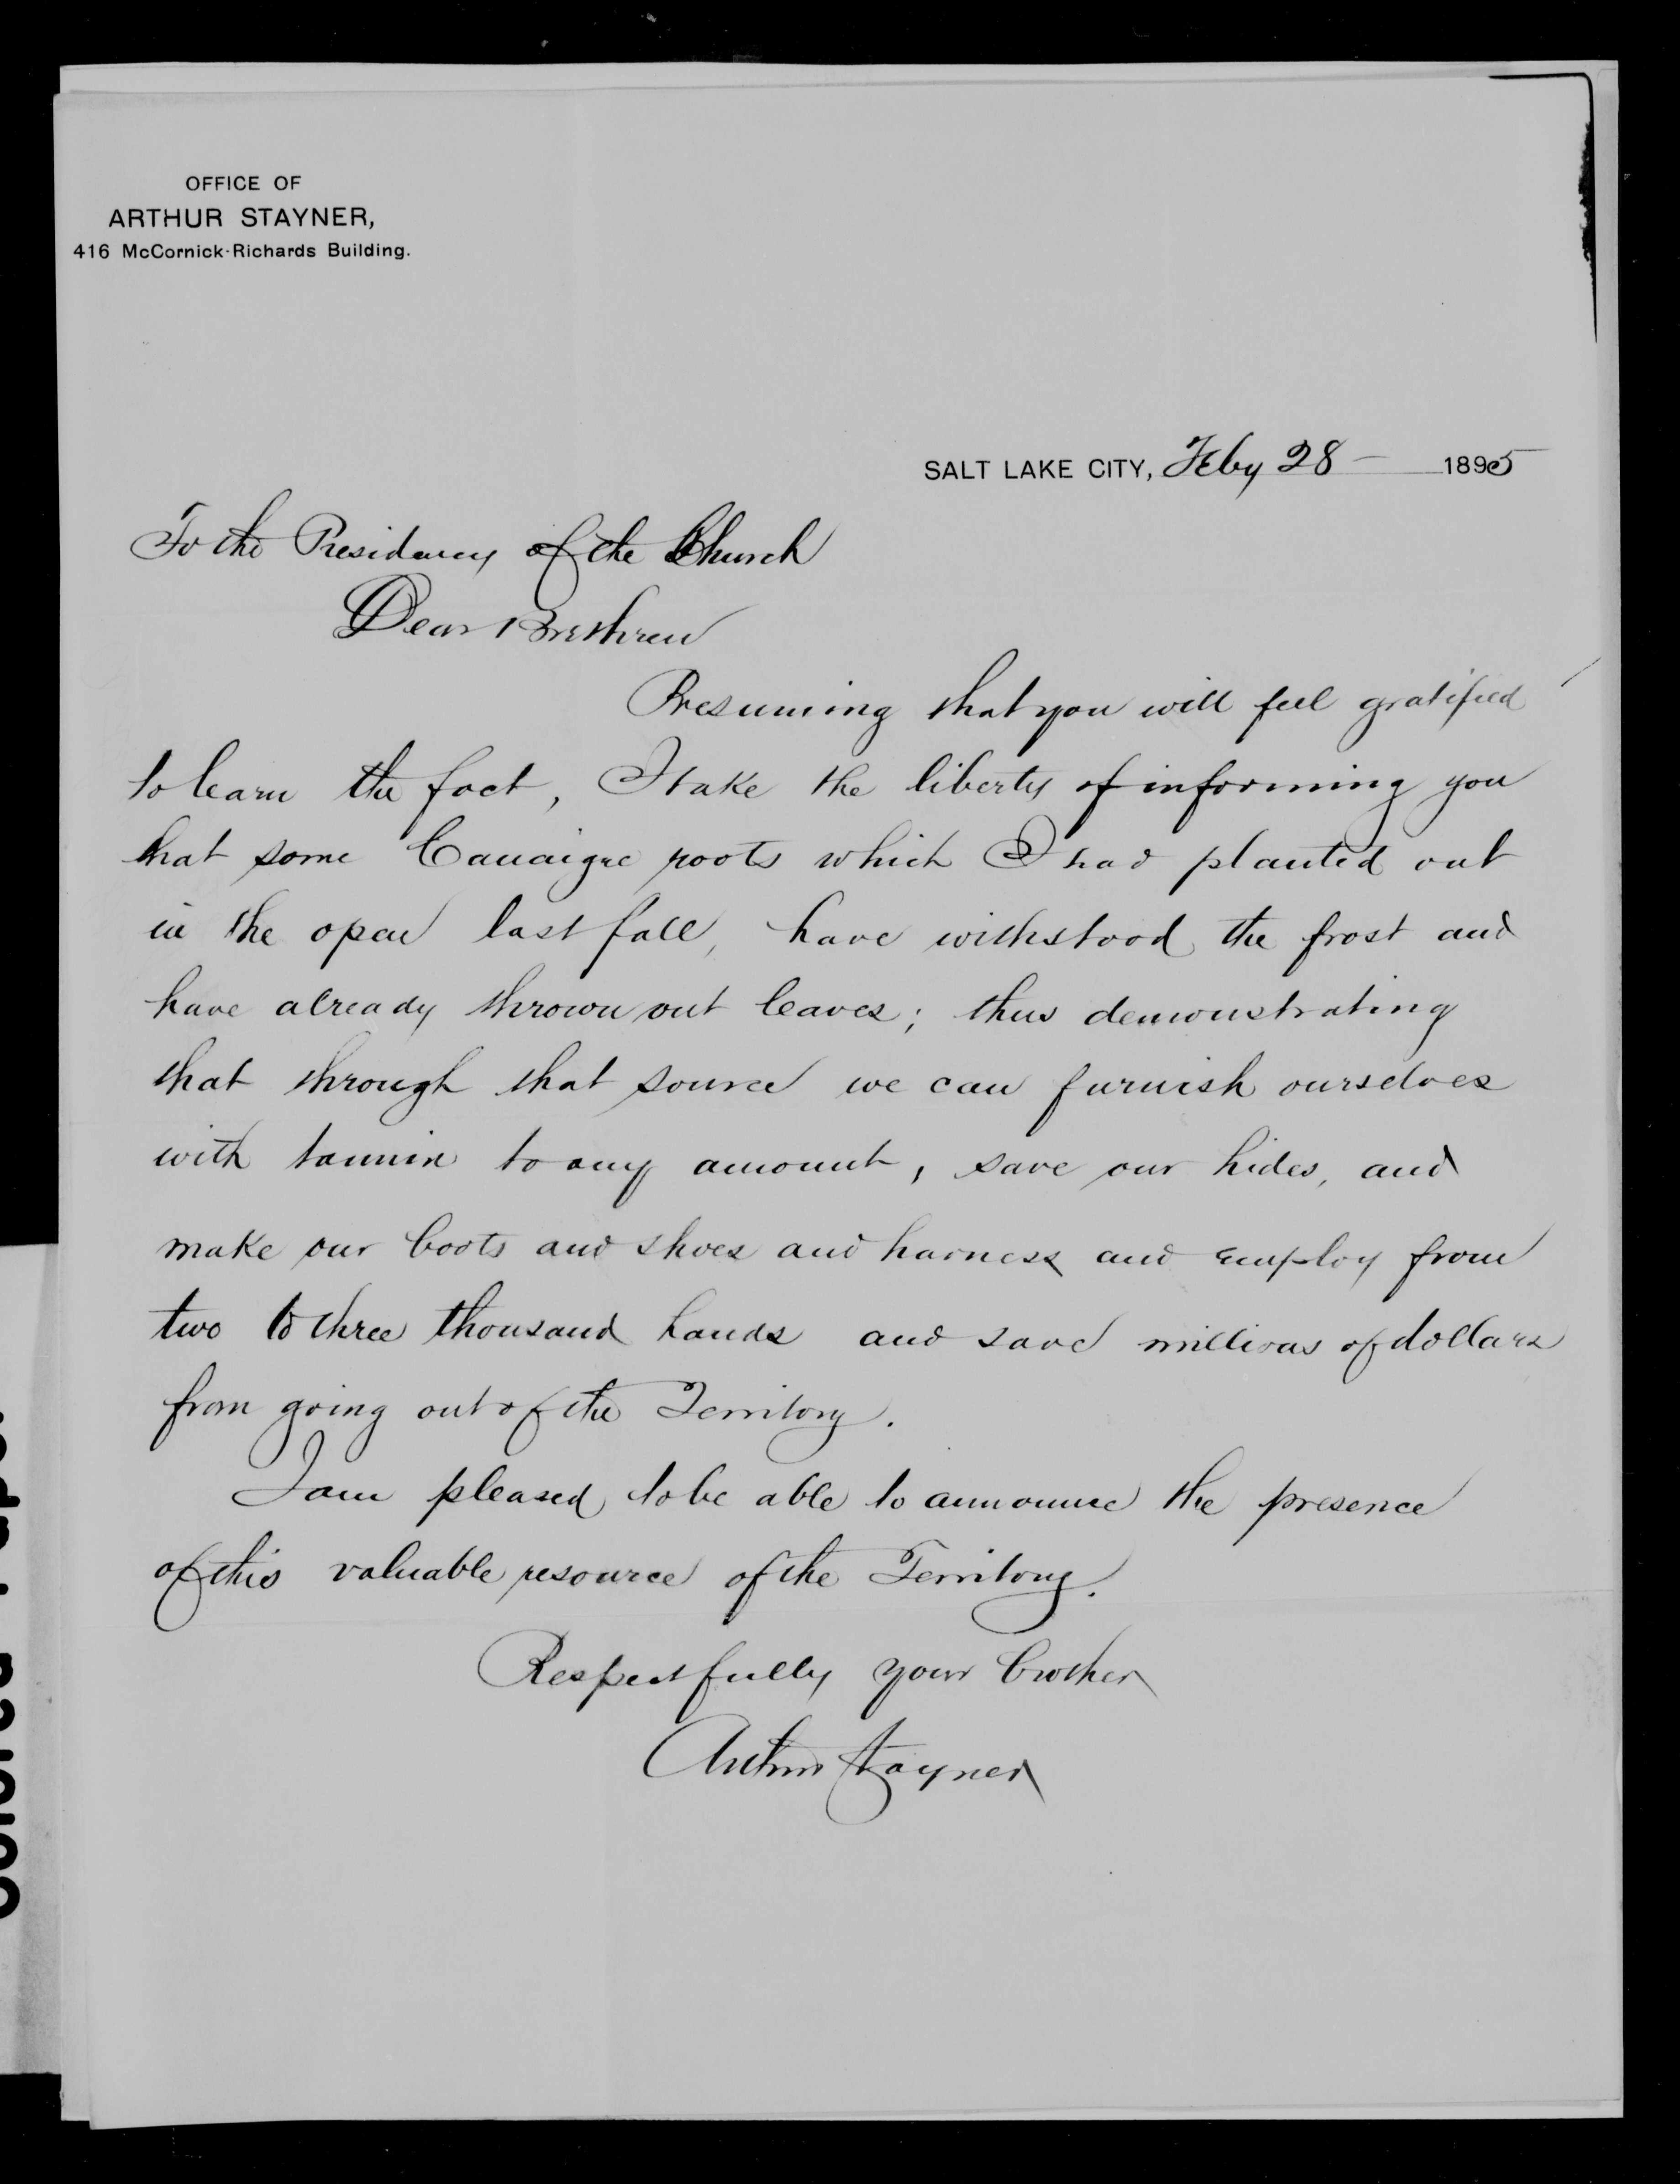 OFFICE OF
ARTHUR STAYNER,
416 McCornick-Richards Building.
SALT LAKE CITY, Feby 28 — 1895
To the Presidency of the Church
Dear Brethren
Presuming that you will feel gratified
to learn the fact, I take the liberty of informing you
that some Canaigre roots which I had planted out
in the open last fall, have withstood the frost and
have already thrown out leaves; thus demonstrating
that through that source we can furnish ourselves
with tannin to any amount, save our hides, and
make our boots and shoes and harness and employ from
two to three thousand hands and save millions of dollars
from going out of the Territory.
I am pleased to be able to announce the presence
of this valuable resource of the Territory.
Respectfully your brother
Arthur Stayner